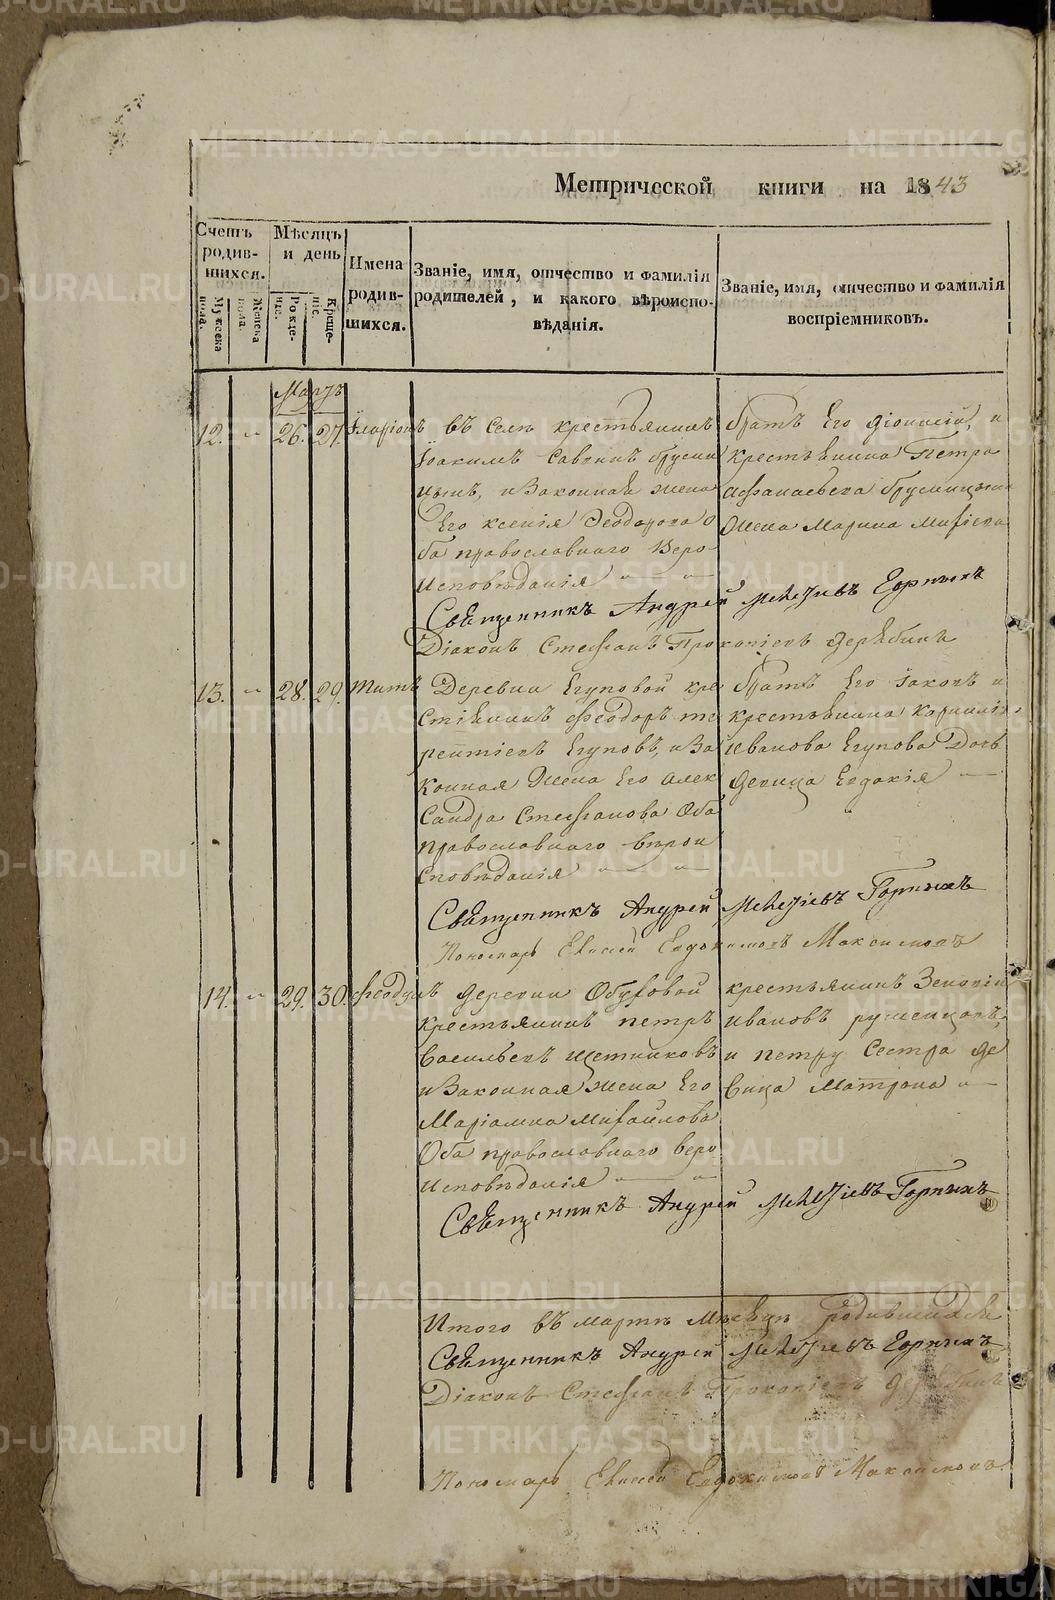 Метрической книги на 1843
Счетъ родив- шихся.
Мужеска пола.
Женска пола.
Мѣсяцъ и день
Рожде- нiе.
Креще- нiе.
Имена родив- шихся.
Званiе, имя, отчество и фамилiя
родителей, и какого вѣроиспо-
вѣданiя.
Званiе, имя, отчество и фамилiя
воспрiемниковъ.
Мартъ
12. 26. 27. Iларiонъ
въ селѣ крестьянинъ
Iоакимъ Саввинъ Брусни
цынъ, и Законная жена
Его Ксенiя Феодорова О
ба православнаго Веро-
Исповѣданiя
братъ Его Дiонисiй, и
крестьянина Петра
Афанасьева Брусницына
Жена Марина
Священникъ Андрей Горныхъ
Дiаконъ Стефанъ Прокопiевъ Дерябинъ
13. 28. 29. Титъ
Деревни Егуповой кре
стьянинъ Феодоръ Те
рентiевъ Егуповъ, и За
конная Жена Его Алек
Сандра Стефанова Оба
православнаго вѣрои
Сповѣданiя
братъ Его Iаковъ и
крестьянина Корнилiя
Иванова Егупова Дочь
Девица Евдокiя
Священникъ Андрей Горныхъ
Пономарь Елисей Евдокимовъ Максимовъ
14. 29. 30. Феодулъ
деревни
крестьянинъ Петръ
Васильевъ Щетниковъ
и Законная жена Его
Марiамна Михайлова
Оба православнаго веро
Исповѣданiя
крестьянинъ
Ивановъ
и Петру Сестра Де
вица Матрона
Священникъ Андрей Горныхъ
Итого въ мартѣ Мѣсяцѣ родившихся
Священникъ Андрей Горныхъ
Дiаконъ Стефанъ Прокопiевъ Дерябинъ
Пономарь Елисей Евдокимовъ Максимовъ
METRIKI.GASO-URAL.RU